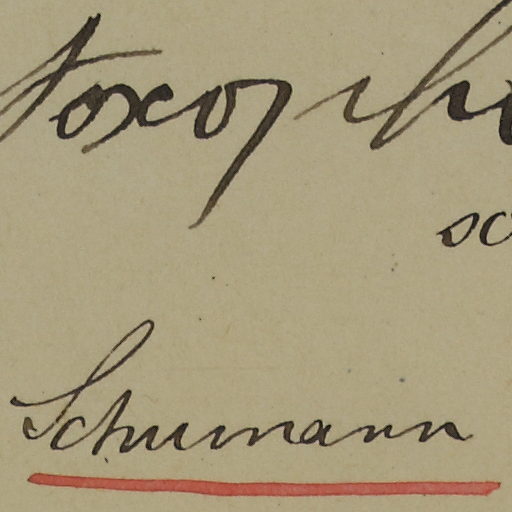 Toxopho
sc
Schumann